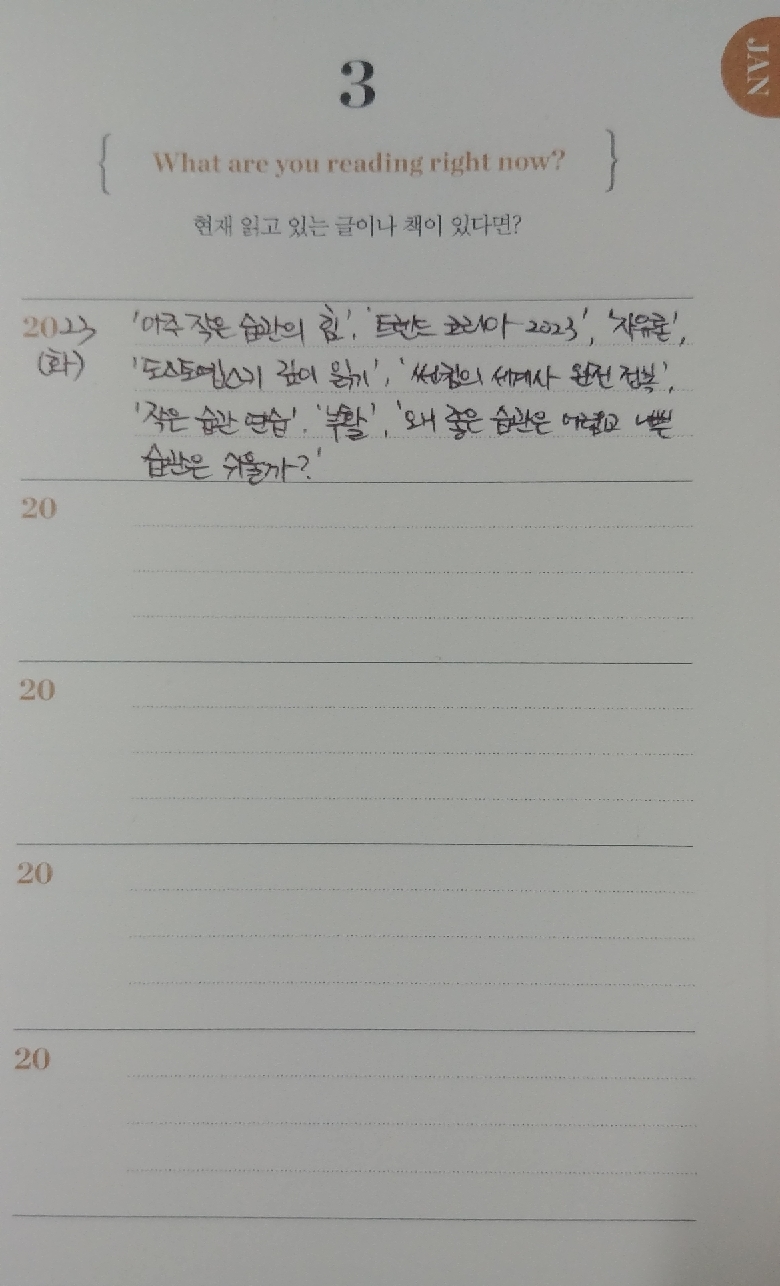 JAN
3
What are you reading right now?
현재 읽고 있는 글이나 책이 있다면?
2023 '아주 작은 습관의 힘', '트렌드 코리아 2023', '자유론',
(화) '도스토옙스키 깊이 읽기', '썬킴의 세계사 완전 정복',
'작은 습관 연습', '부활', '왜 좋은 습관은 어렵고 나쁜
습관은 쉬울까?'
20
20
20
20